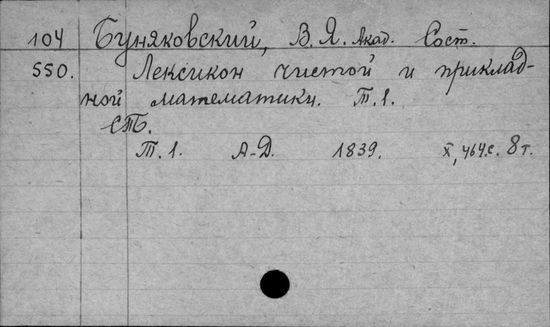 104 Буняковский, В. Я. Акад. Сост.
550. Лексикон чистой и приклад-
ной математики. Т. 1.
СПб.
Т. 1. А-Д. 1839. X, 464 с. 8 т.